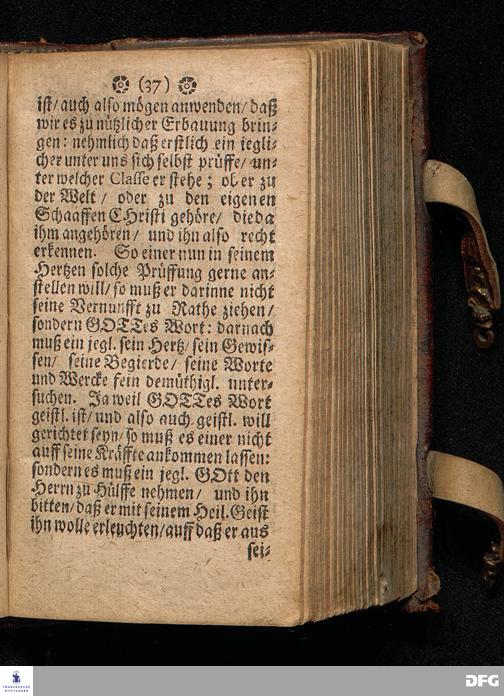 (37)
ist/ auch also mögen anwenden/ daß
wir es zu nützlicher Erbauung brin-
gen: nehmlich daß erstlich ein iegli-
cher unter uns sich selbst prüffe/ un-
ter welcher Classe er stehe; ob er zu
der Welt/ oder zu den eigenen
Schaaffen CHristi gehöre/ die da
ihm angehören/ und ihn also recht
erkennen. So einer nun in seinem
Hertzen solche Prüffung gerne an-
stellen will/ so muß er darinne nicht
seine Vernunfft zu Rathe ziehen/
sondern GOTTes Wort: darnach
muß ein jegl. sein Hertz/ sein Gewis-
sen/ seine Begierde/ seine Worte
und Wercke fein demüthigl. unter-
suchen. Ja weil GOTTes Wort
geistl. ist/ und also auch geistl. will
gerichtet seyn/ so muß es einer nicht
auff seine Kräffte ankommen lassen:
sondern es muß ein jegl. GOtt den
Herrn zu Hülffe nehmen/ und ihn
bitten/ daß er mit seinem Heil. Geist
ihn wolle erleuchten/ auff daß er aus
sei-
FRANCKESCHE
STIFTUNGEN
DFG